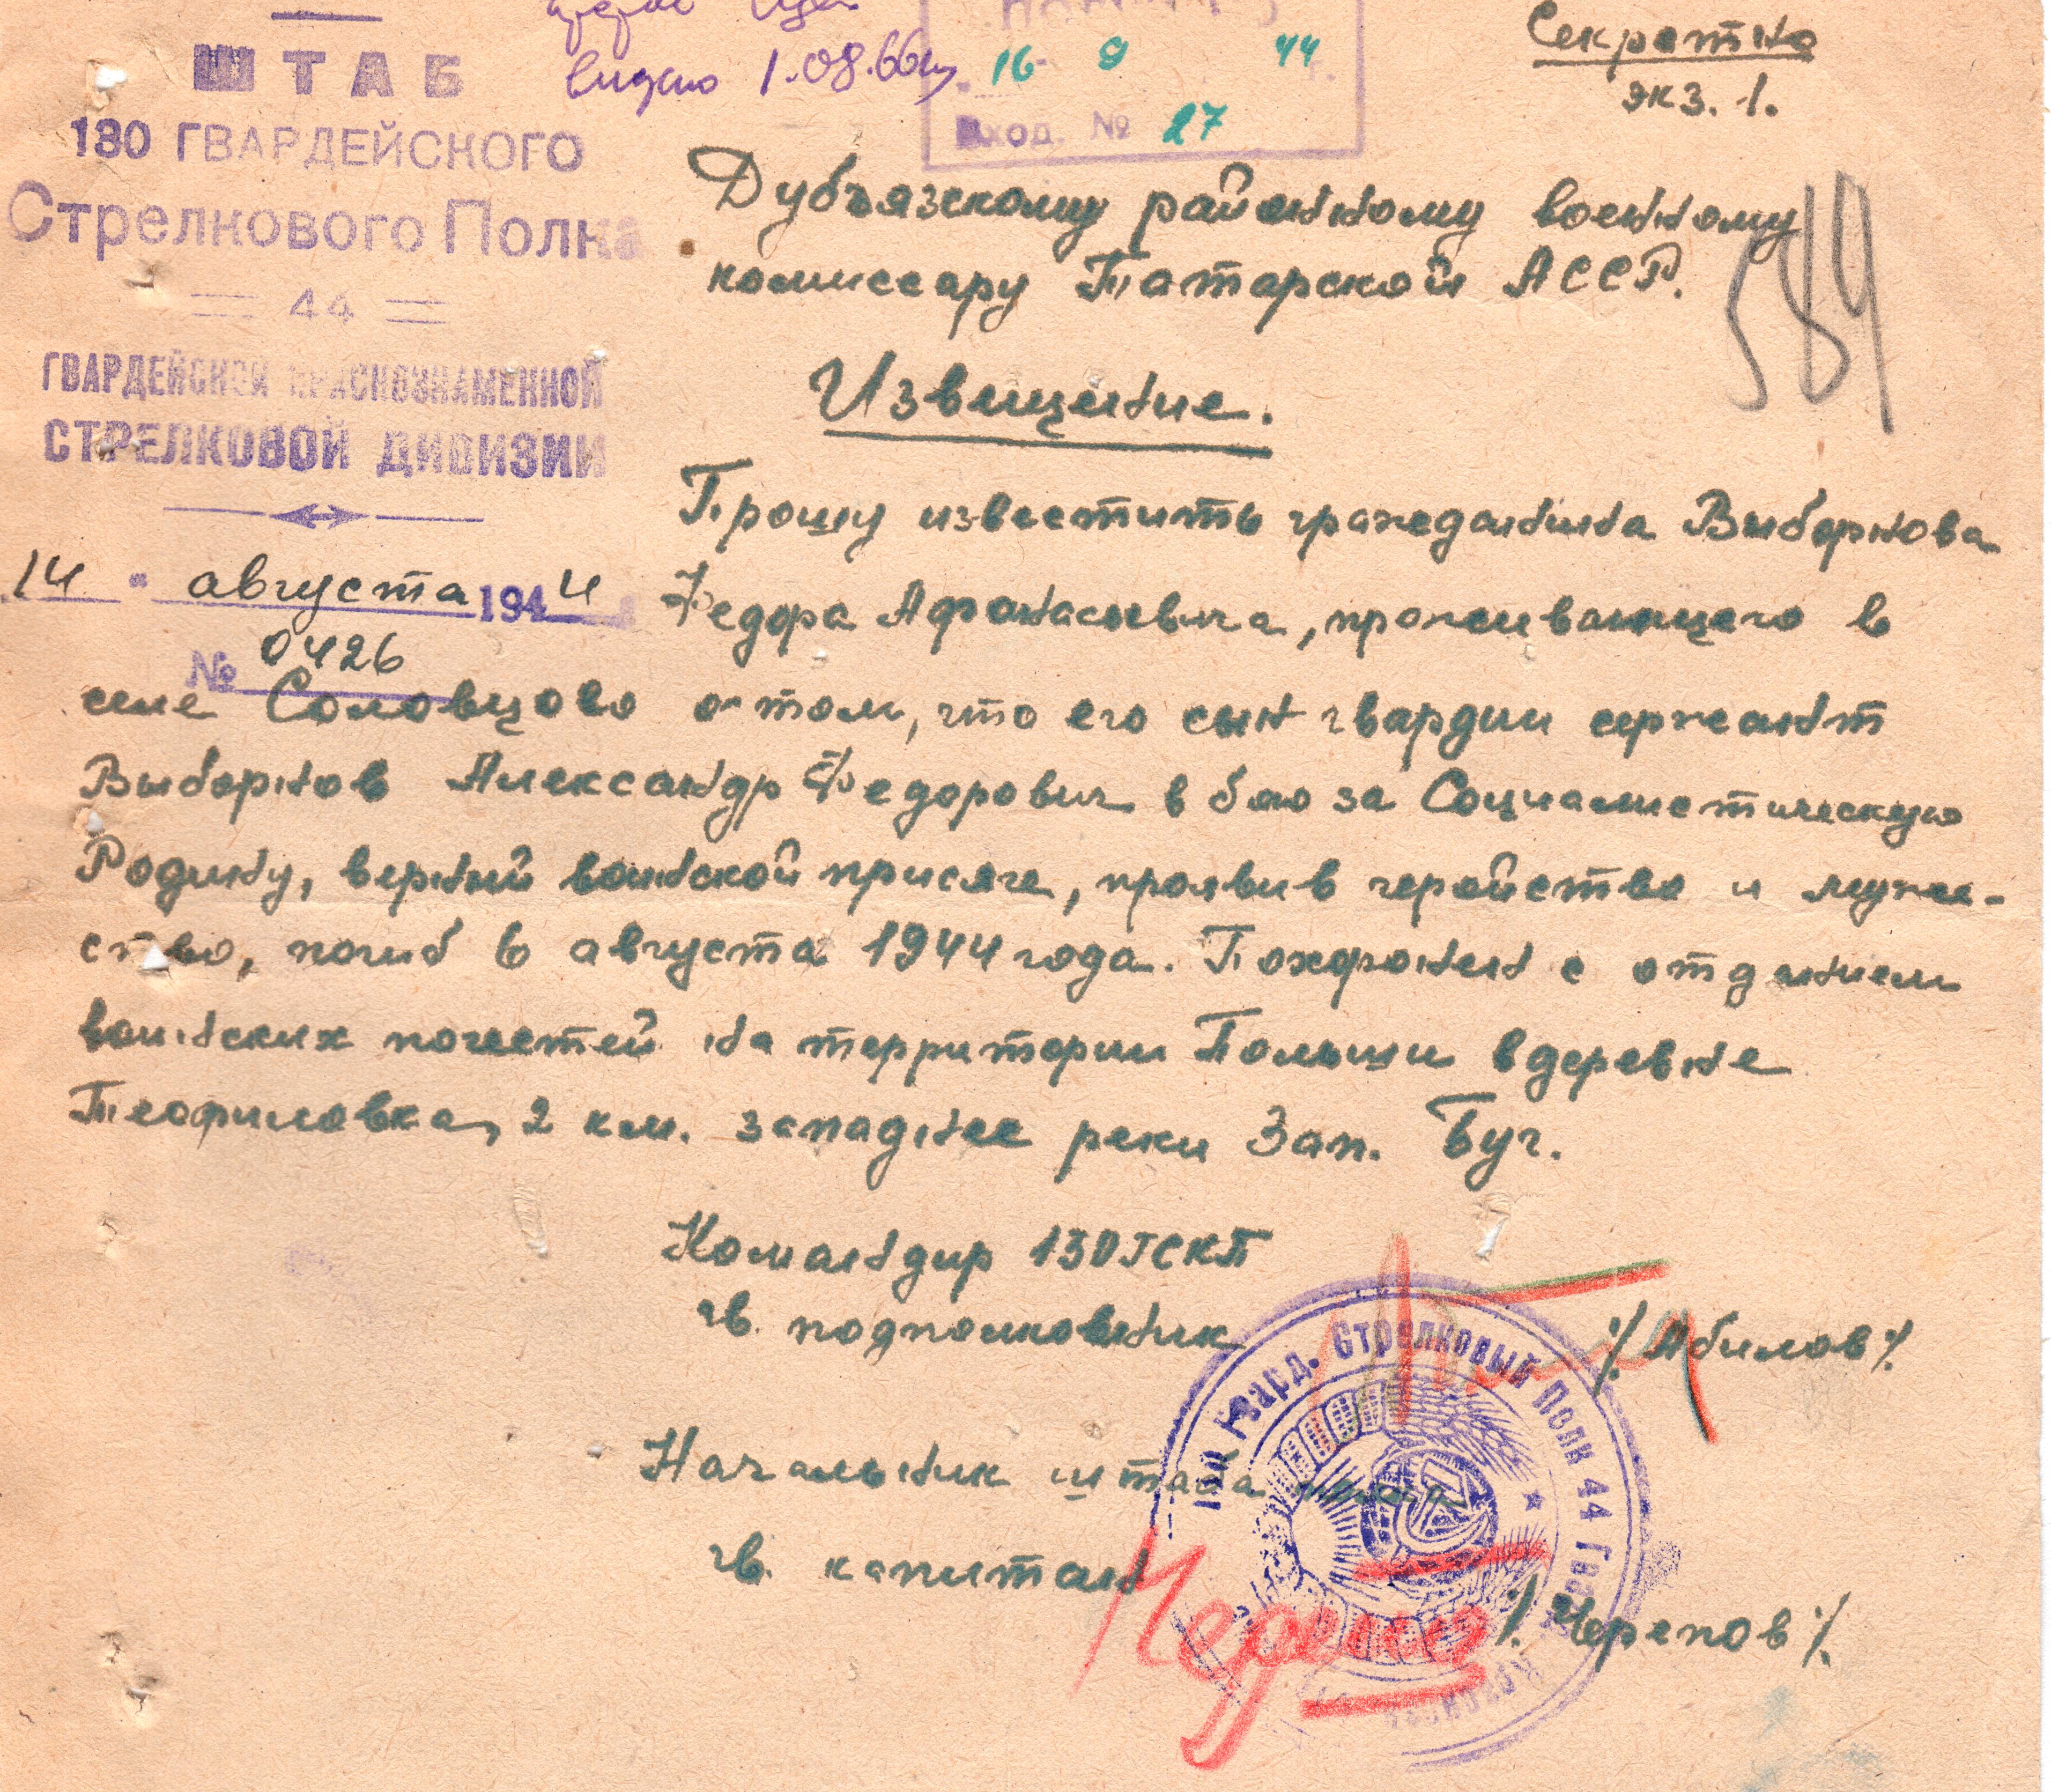 ШТАБ
130 ГВАРДЕЙСКОГО
Стрелкового Полка
44
ГВАРДЕЙСКОЙ КРАСНОЗНАМЕННОЙ
СТРЕЛКОВОЙ ДИВИЗИИ
14 " августа 1944
№ 0426
видно 1.08.66
16 9 44
Вход. № 27
Секретно
экз. 1.
584
Дубъязскому районному военному
комиссару Татарской АССР.
Извещение.
Прошу известить гражданина Выборнова
Федора Афонасьевича, проживающего в
селе Соловцово о том, что его сын гвардии сержант
Выборнов Александр Федорович в бою за Социалистическую
Родину, верный воинской присяге, проявив геройство и муже-
ство, погиб 6 августа 1944 года. Похоронен с отданием
воинских почестей на территории Польши в деревне
Теофиловка, 2 км. западнее реки Зап. Буг.
Командир 130 ГСКП
гв. подполковник /Абилов/
Начальник штаба полка
гв. капитан /Черепов/
130 Гвард. Стрелковый Полк 44 Гвард. Красн